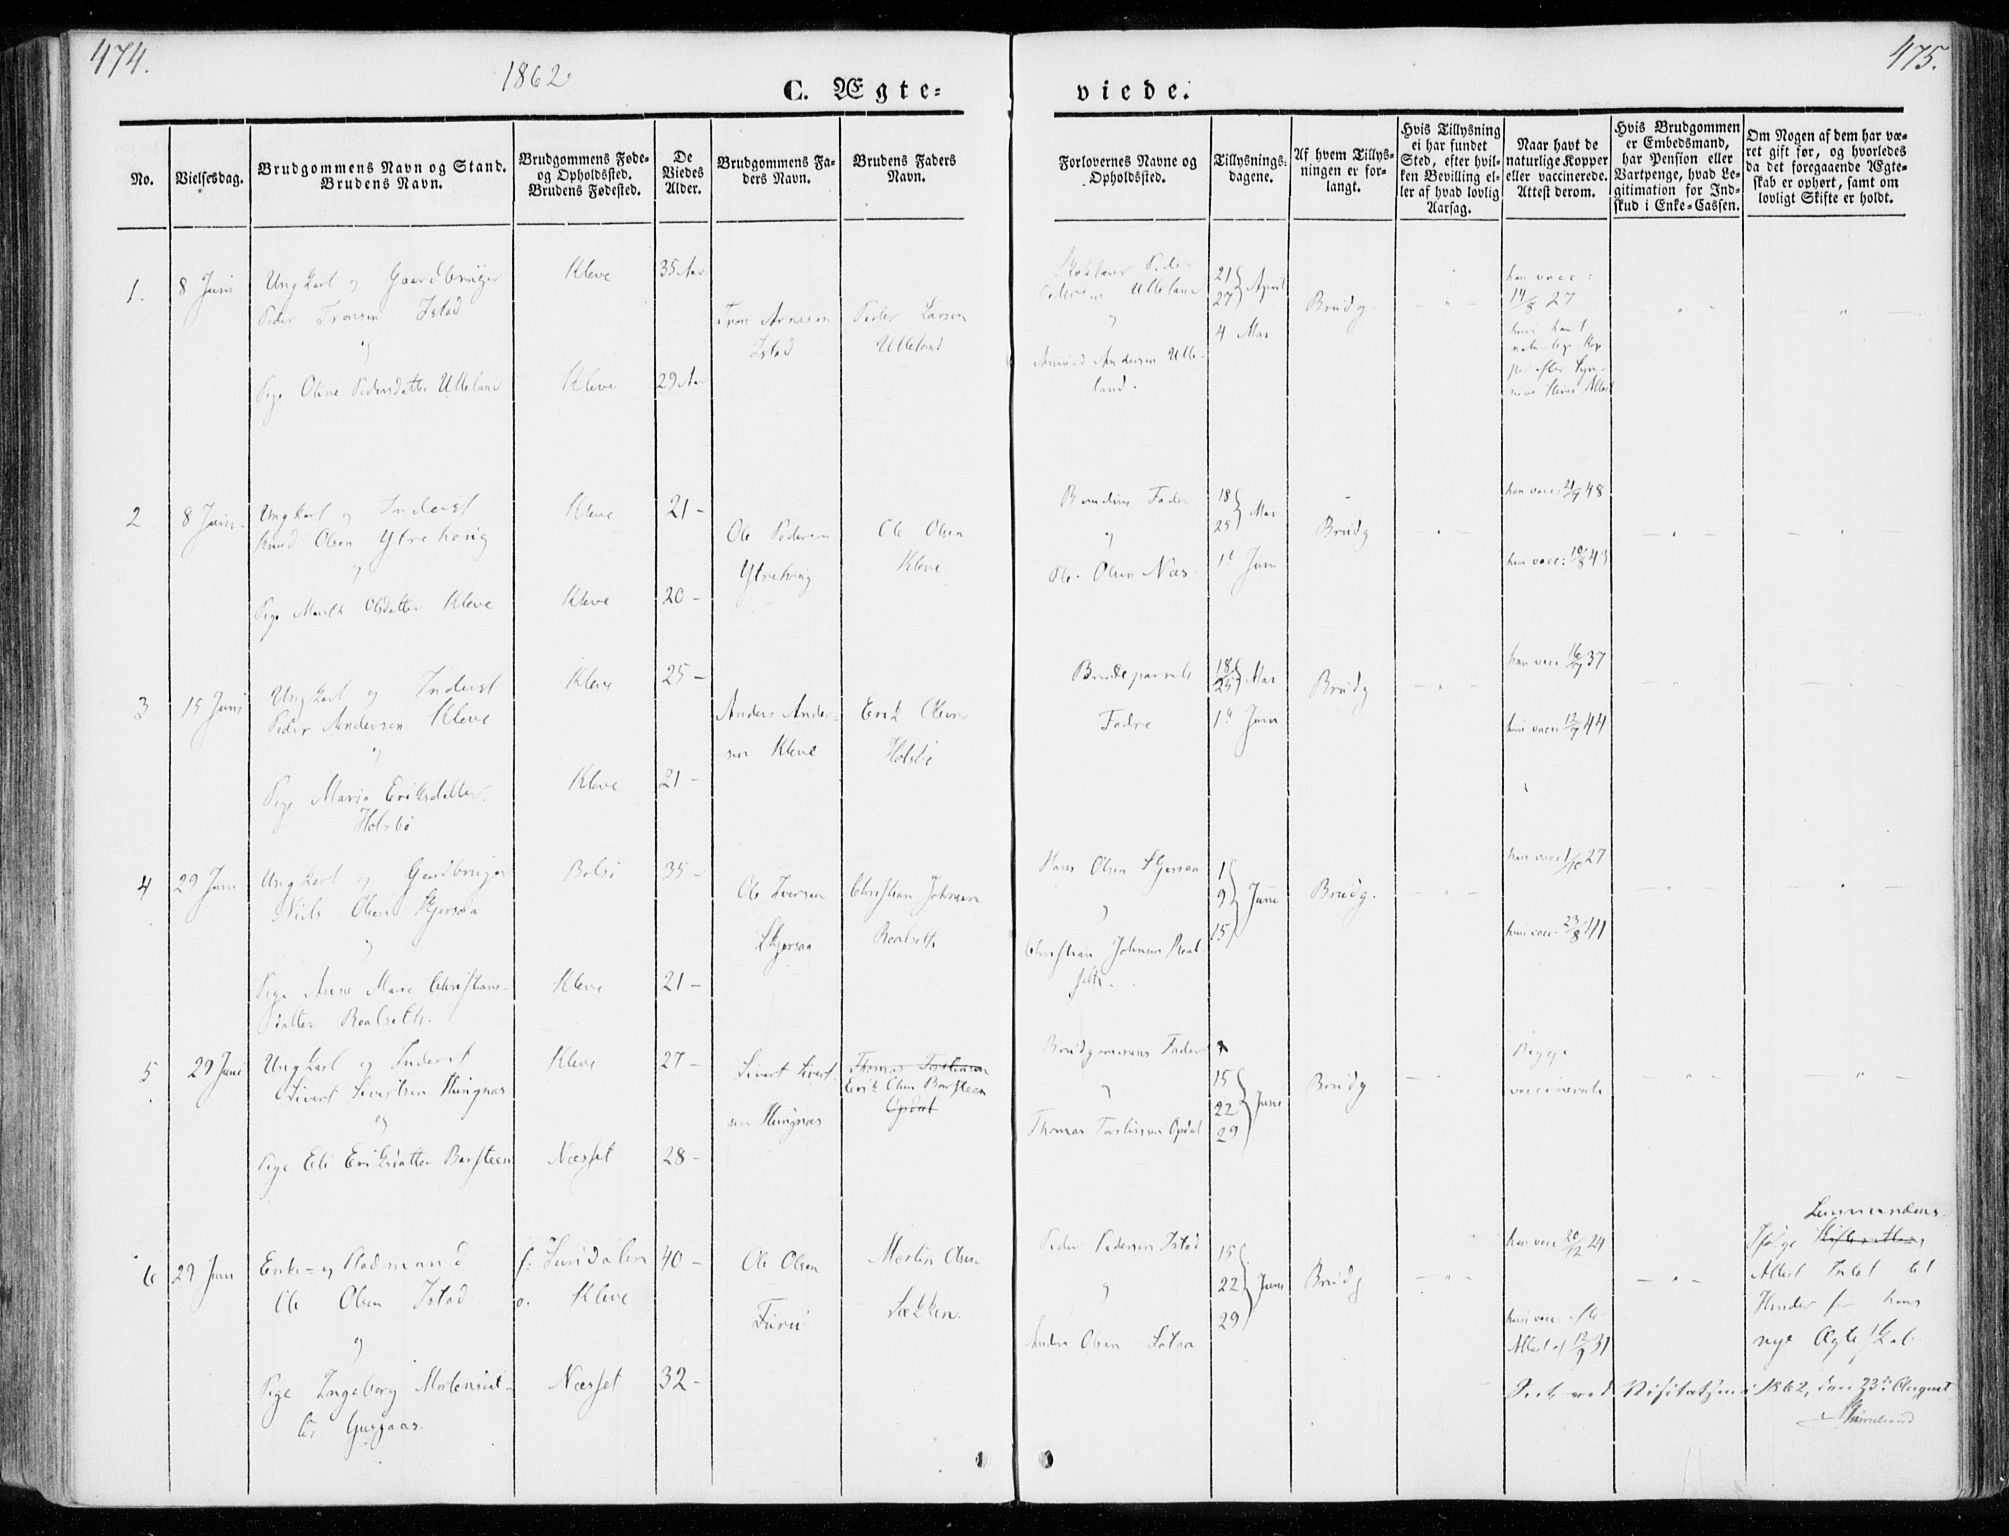 474.
1862
C. Ægte=
viede.
475.
No.
Vielsesdag.
Brudgommens Navn og Stand.
Brudens Navn.
Brudgommens Føde-
og Opholdssted.
Brudens Fødested.
De
Viedes
Alder.
Brudgommens Fa-
ders Navn.
Brudens Faders
Navn.
Forlovernes Navne og
Opholdssted.
Tillysnings-
dagene.
Af hvem Tillys-
ningen er for-
langt.
Hvis Tillysning
ei har fundet
Sted, efter hvil-
ken Bevilling el-
ler af hvad lovlig
Aarsag.
Naar havt de
naturlige Kopper
eller vaccinerede.
Attest derom.
Hvis Brudgommen
er Embedsmand,
har Pension eller
Vartpenge, hvad Le-
gitimation for Ind-
skud i Enke=Cassen.
Om Nogen af dem har væ-
ret gift før, og hvorledes
da det foregaaende Ægte-
skab er ophørt, samt om
lovligt Skifte er holdt.
1.
8 Juni
Ungkarl og Gaardbruger
Peder Tronsen Istad
og
Pige Oline Pedersdatter Ulleland
Kleve
Kleve
35 Aar
29 Aar
Tron Arnesen
Istad
Peder Larsen
Ulleland
Peder
Ulleland
og
Andersen Ulle-
land.
21
27 April
4 Mai
Brudg.
han vacc:
14/8 27
2
8 Juni
Ungkarl og Inderst
Knud Olsen Ytrehoug
og
Pige Marit Olsdatter Kleve
Kleve
Kleve
21 -
20 -
Ole Pedersen
Ytrehoug
Ole Olsen
Kleve
Brudens Fader
og
Ole Olsen Næs
18
25 Mai
1d Juni
Brudg
han vacc: 21/7 48
hun vacc: 10/8 43
3
15 Juni
Ungkarl og Inderst
Peder Andersen Kleve
og
Pige Maria Eriksdatter
Holsbø
Kleve
Kleve
25 -
21 -
Anders Ander-
sen Kleve
Erik Olsen
Holsbø
Brudeparrets
Fædre
18
25 Mai
1d Juni
Brudg
han vacc 16/7 37
hun vacc 12/7 44
4
29 Juni
Ungkarl og Gaardbruger
Niels Olsen Skjersaa
og
Pige Anne Marie Christians-
datter Roalseth.
Bolsø
Kleve
35 -
21 -
Ole Iversen
Skjersaa
Christian Johnsen
Roalseth.
Hans Olsen Skjersaa
og
Christian Johnsen Roal
seth.
1
9 Juni
15
Brudg.
han vacc 1/10 27
hun vacc 23/8 41
5
29 Juni
Ungkarl og Inderst
Sivert Sivertsen Hungnæs
og
Pige Eli Eriksdatter Barsteen
Kleve
Næsset
27 -
28 -
Sivert Sivert-
sen Hungnæs
Thomas Torstensen
Erik Olsen Barsteen
Opdøl
Brudgommens Fader
og
Thomas Torstensen Opdøl
15
22 Juni
29
Brudg
Begge
vaccinerede
6
29 Juni
Enke- og Pladsmand
Ole Olsen Istad
og
Pige Ingeborg Mortensdat-
ter Gusjaas.
f: Sundalen
o. Kleve
Næsset
40 -
32 -
Ole Olsen
Furu
Morten Olsen
Sækken.
Peder Pedersen Istad
og
Anders Olsen
15
22 Juni
29
Brudg
han vacc 20/12 24
hun vacc. efter
Attest af 12/9 31
Lensmandens
Ifølge
Attest Intet til
Hinder for hans
nye Ægteskab
Seet ved Visitatsen i 1862, den 23de August